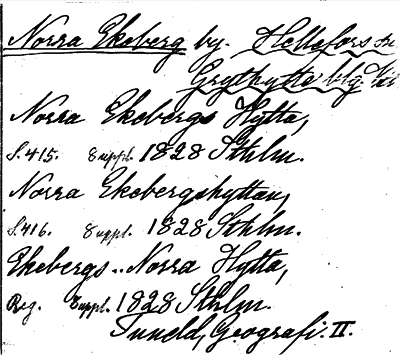 Norra Ekeberg by. Hellefors
Grythytte blg.
Norra Ekebergs Hytta,
S. 415. Suppl. 1828 Sthlm.
Norra Ekebergshyttan,
S. 416. Suppl. 1828 Sthlm.
Ekebergs.. Norra Hytta,
Reg. Suppl. 1828 Sthlm.
Tuneld, Geografi. II.